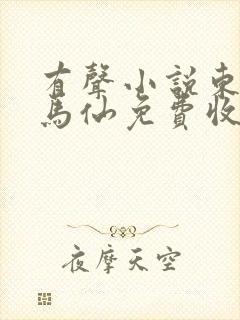 有聲小說東
馬仙免費收
夜摩天空